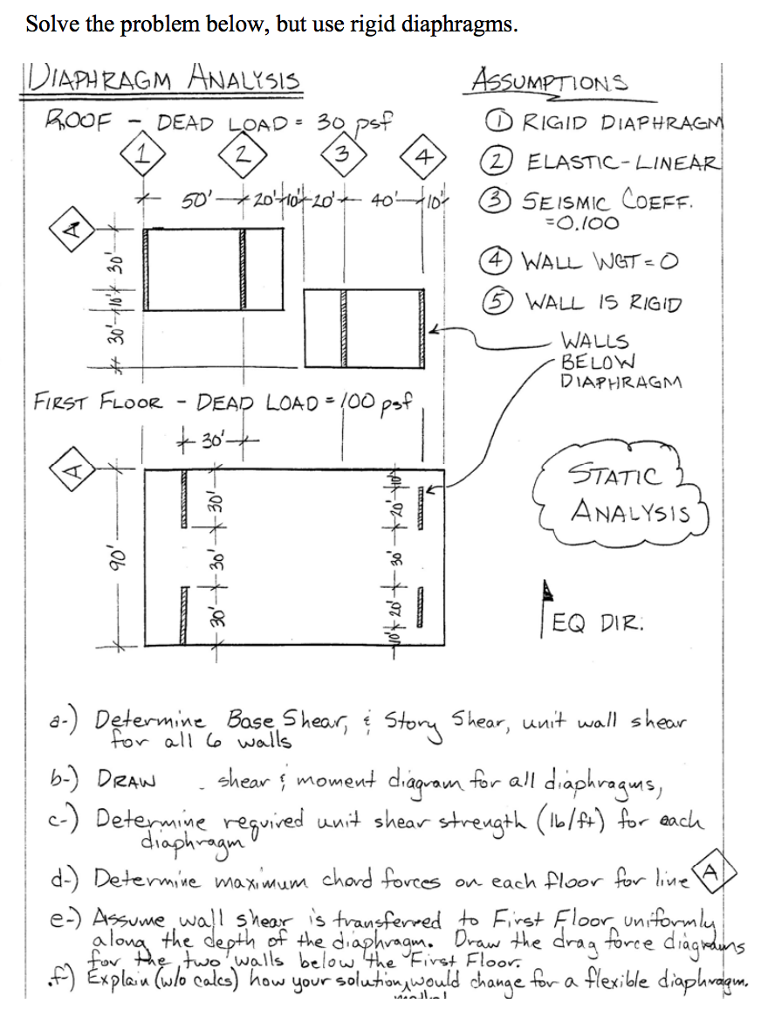 Solve the problem below, but use rigid diaphragms.
DIAPHRAGM ANALYSIS
ASSUMPTIONS
ROOF - DEAD LOAD = 30 psf
① RIGID DIAPHRAGM
② ELASTIC-LINEAR
③ SEISMIC COEFF.
=0.100
④ WALL WGT = 0
⑤ WALL IS RIGID
1 2 3 4
50' 20' 10' 20' 40' 10'
A
30'
10'
30'
WALLS
BELOW
DIAPHRAGM
FIRST FLOOR - DEAD LOAD = 100 psf
30'
A
90'
30'
30'
30'
10'
20'
30'
20'
10'
STATIC
ANALYSIS
EQ DIR.
a-) Determine Base Shear, & Story Shear, unit wall shear
for all 6 walls
b-) DRAW shear & moment diagram for all diaphragms,
c-) Determine required unit shear strength (lb/ft) for each
diaphragm
d-) Determine maximum chord forces on each floor for line A
e-) Assume wall shear is transferred to First Floor uniformly
along the depth of the diaphragm. Draw the drag force diagrams
for the two walls below the First Floor.
f-) Explain (w/o calcs) how your solution would change for a flexible diaphragm.